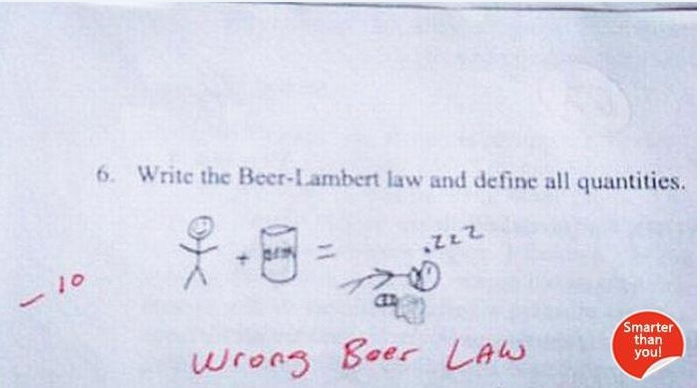 6. Write the Beer-Lambert law and define all quantities.
+ BEER =
.zzz
-10
Wrong Beer LAW
Smarter
than
you!